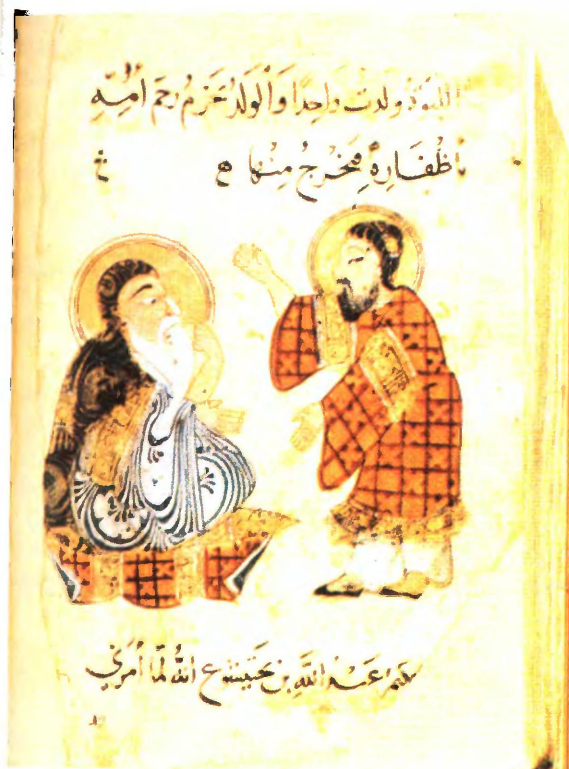 اللبوة ولدت واحدا والولد يخزم رحم امه
باظفاره فيخرج منها ه خ
عبد الله بن بختيشوع الله لما أمرني